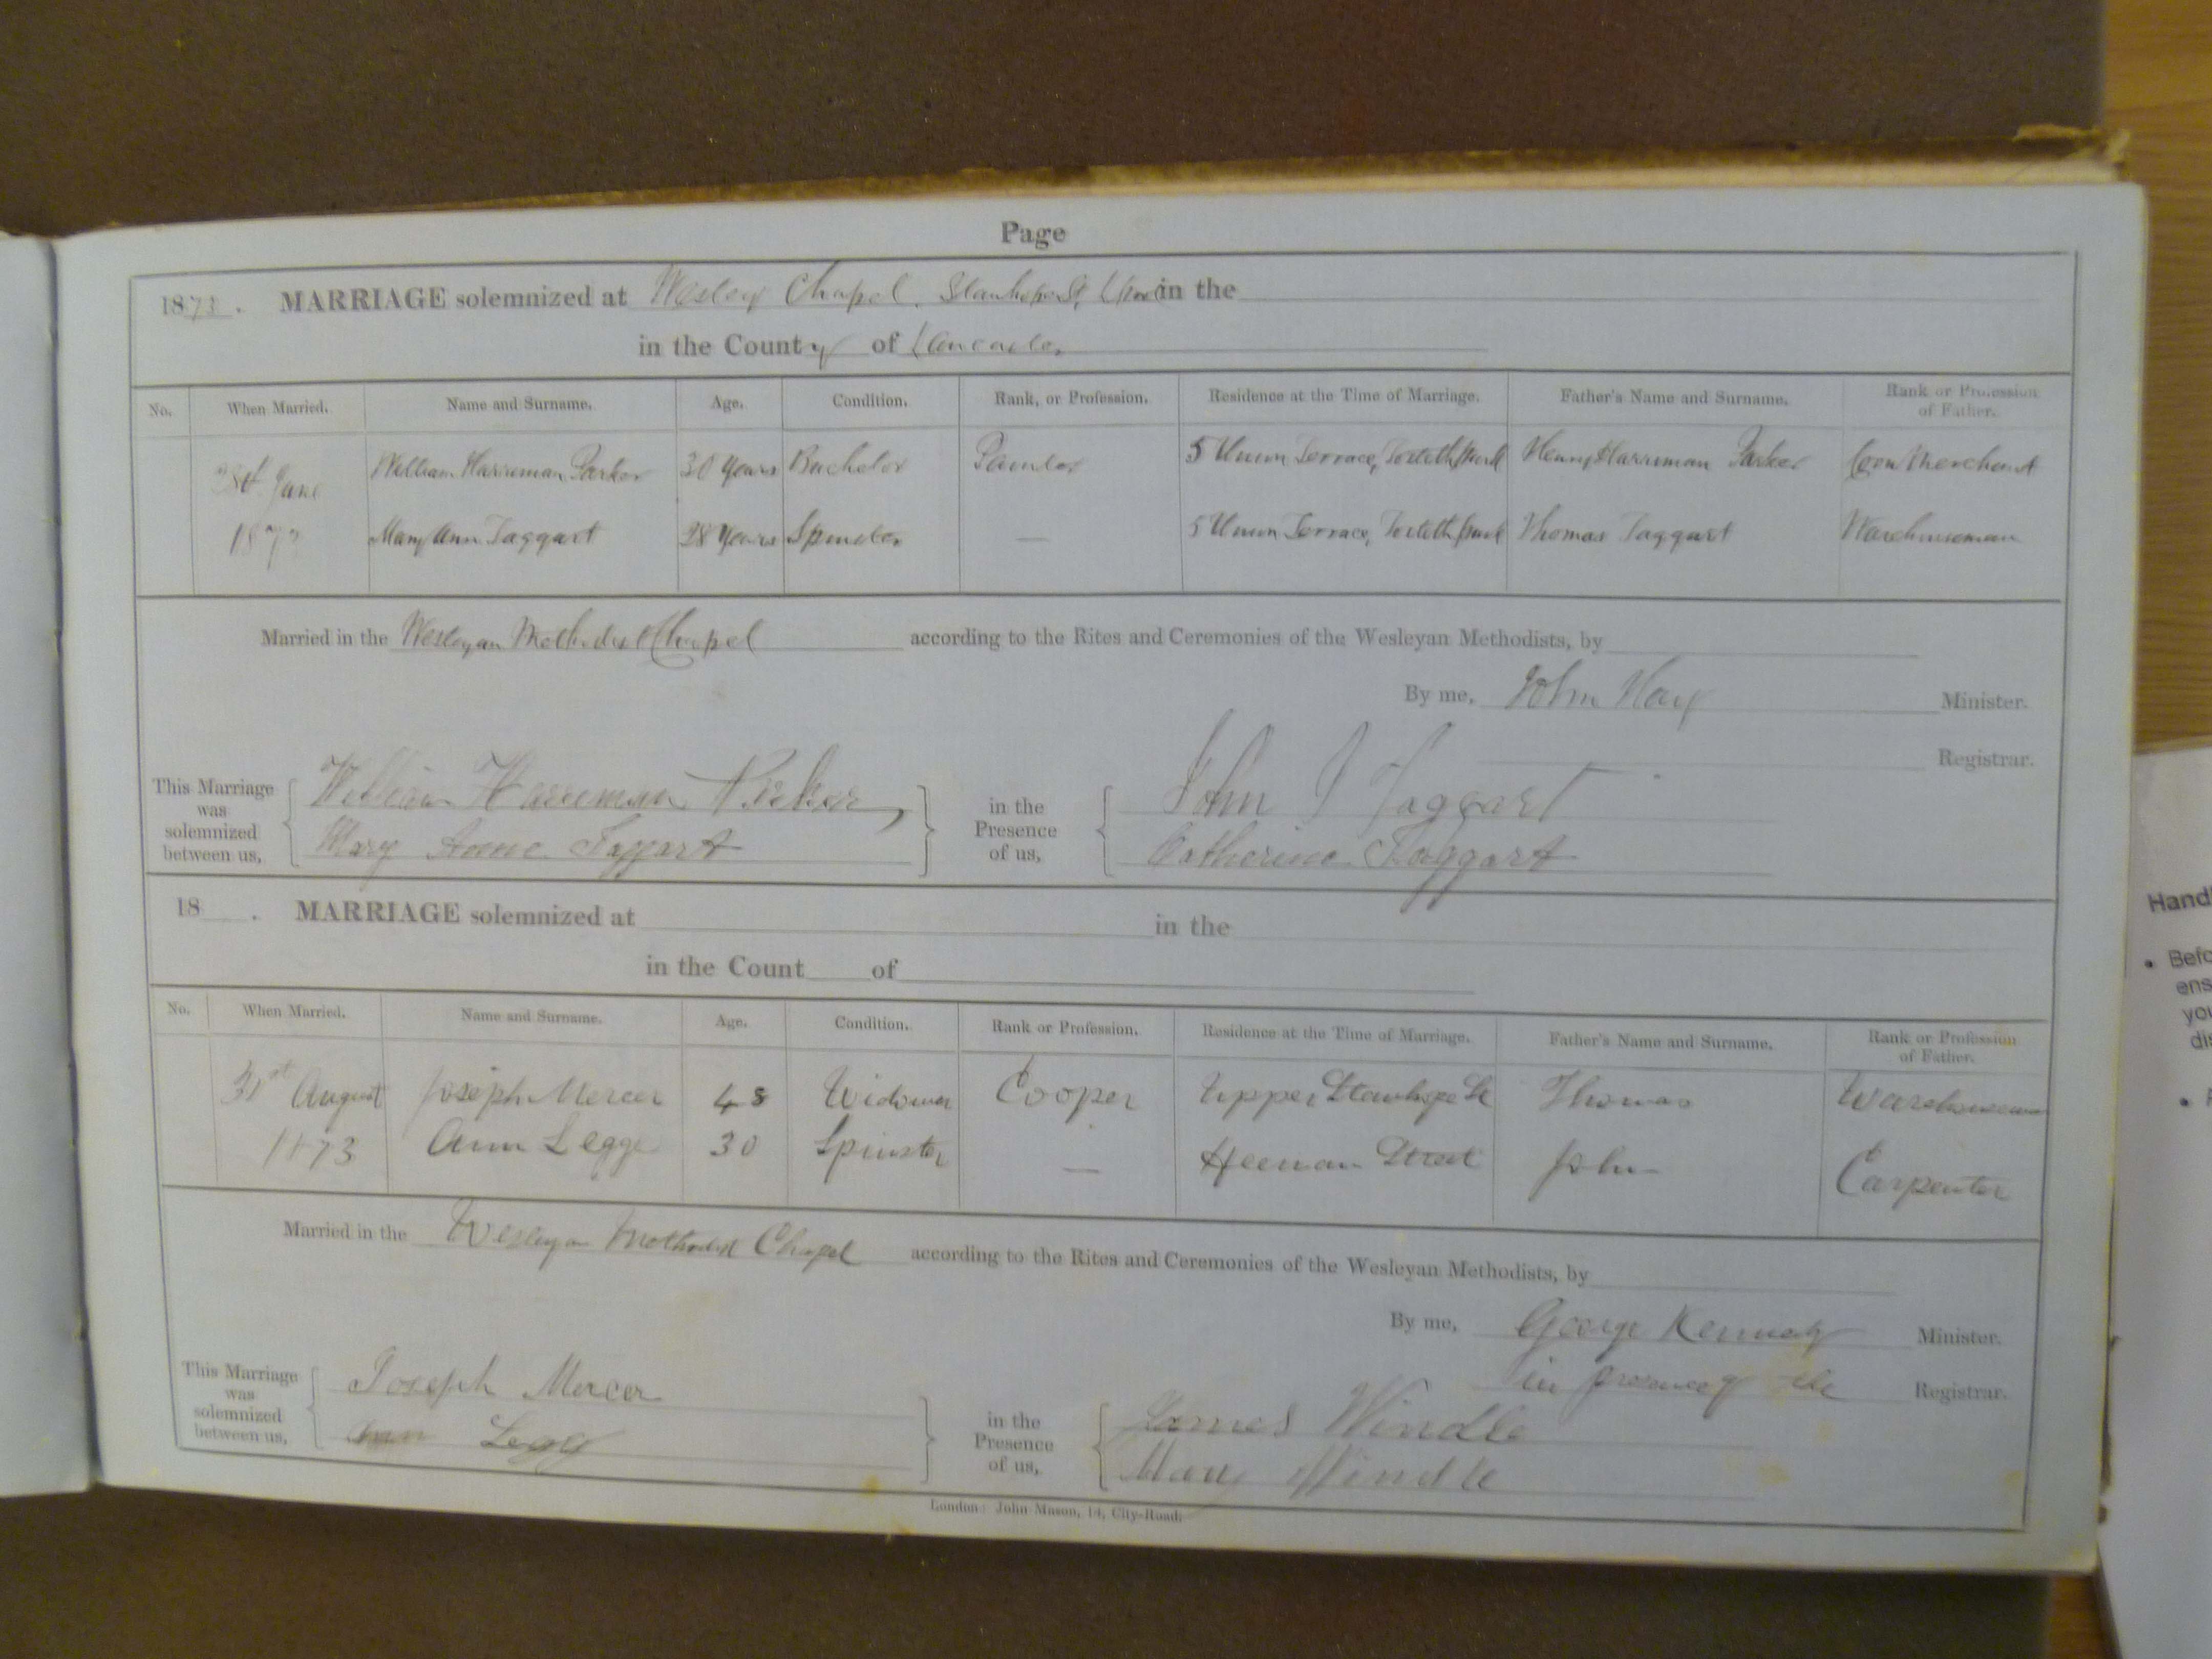 Page
1873. MARRIAGE solemnized at Wesley Chapel, Stanhope St, in the
in the County of Lancaster
No. When Married. Name and Surname. Age. Condition. Rank, or Profession. Residence at the Time of Marriage. Father's Name and Surname. Rank or Profession of Father.
June William Harriman Parker 30 Years Bachelor Painter 5 Union Terrace, Toxteth Park Henry Harriman Parker Corn Merchant
1873 Mary Ann Taggart 28 Years Spinster — 5 Union Terrace, Toxteth Park Thomas Taggart Warehouseman
Married in the Wesleyan Methodist Chapel according to the Rites and Ceremonies of the Wesleyan Methodists, by
By me, John Hay Minister.
Registrar.
This Marriage was solemnized between us, William Harriman Parker in the Presence of us, John J Taggart
Mary Anne Taggart Catherine Taggart
18 . MARRIAGE solemnized at in the
in the Count of
No. When Married. Name and Surname. Age. Condition. Rank or Profession. Residence at the Time of Marriage. Father's Name and Surname. Rank or Profession of Father.
31st August Joseph Mercer 48 Widower Cooper Upper Stanhope St Thomas Warehouseman
1873 Ann Legge 30 Spinster — Street John Carpenter
Married in the Wesleyan Methodist Chapel according to the Rites and Ceremonies of the Wesleyan Methodists, by
By me, George Kennedy Minister.
in presence of the Registrar.
This Marriage was solemnized between us, Joseph Mercer in the Presence of us, James Windle
Ann Legg Mary Windle
London: John Mason, 14, City-Road.